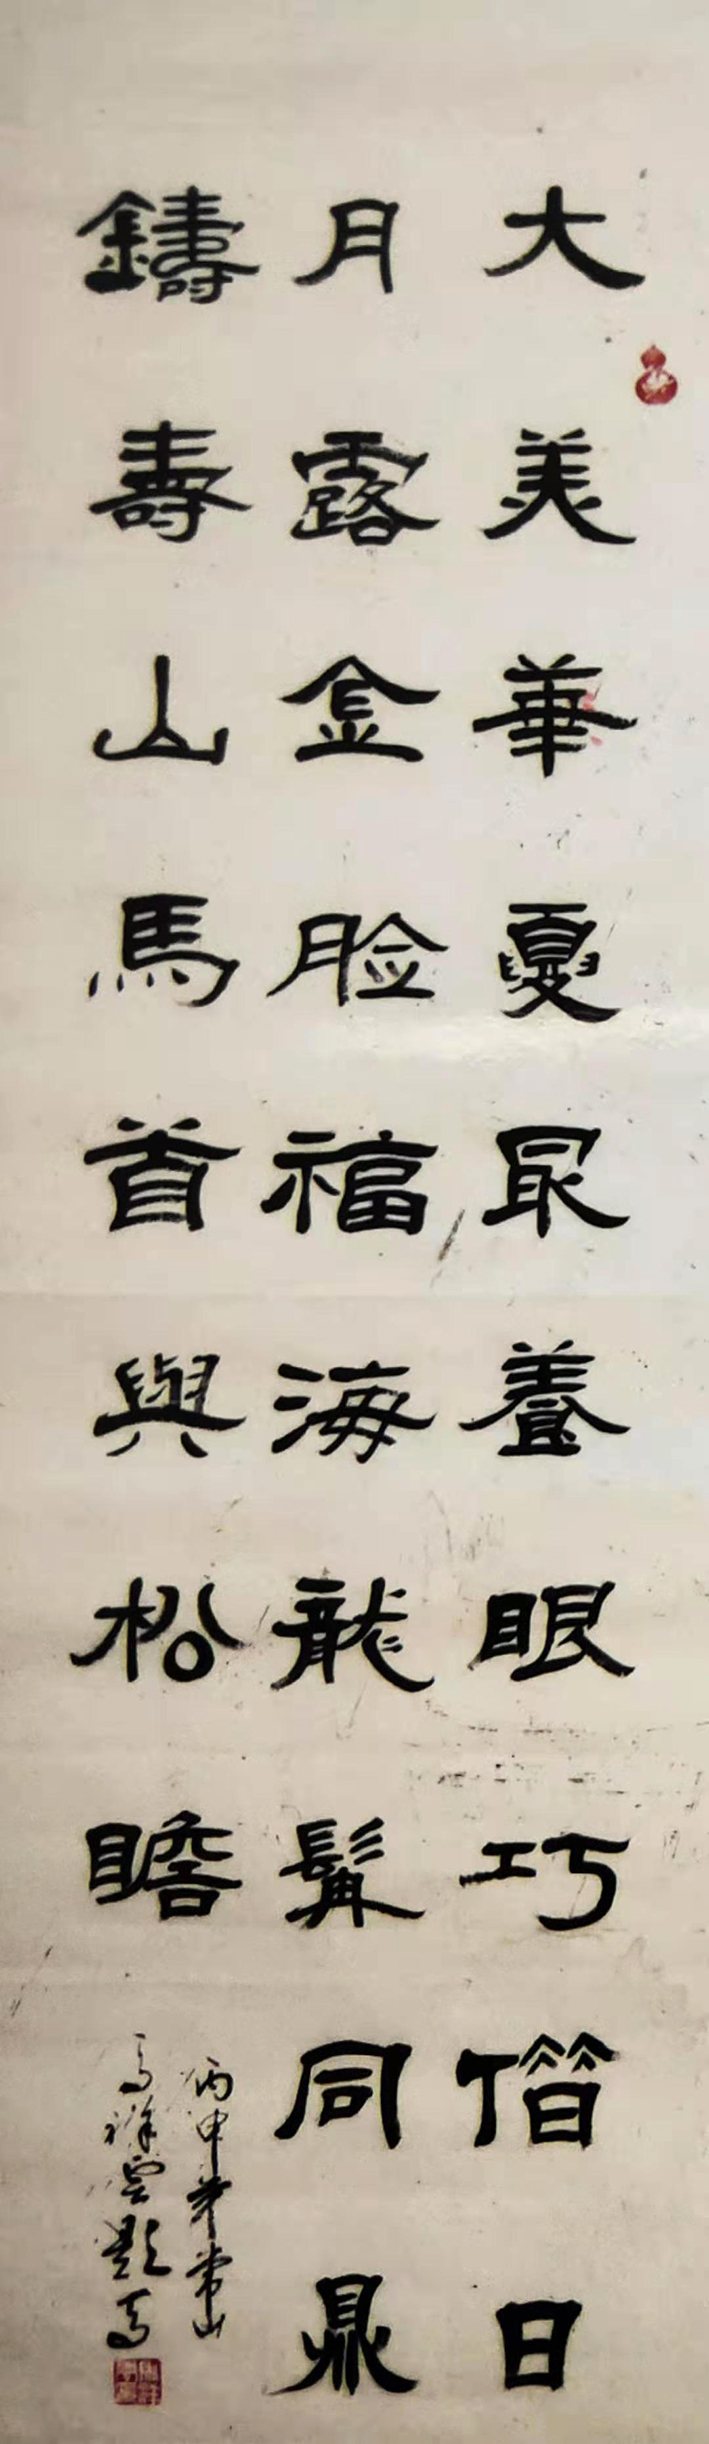 大美華夏最養眼巧借日
月露金脸福海龍髯同鼎
鑄壽山馬首與松瞻
丙申 常山
馬祥雲題